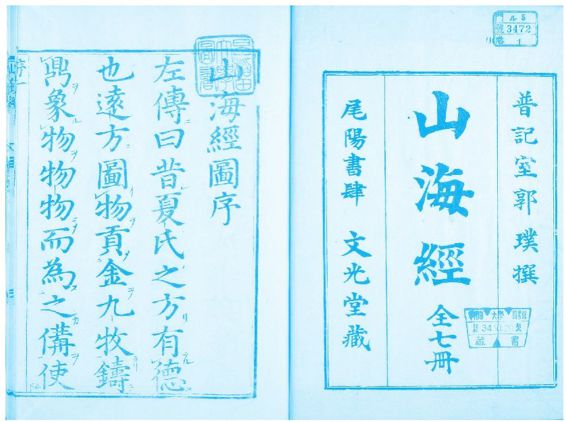 ル5
號 3472
卷 1
晉記室郭璞撰
山海經 全七冊
尾陽書肆 文光堂藏
山海經圖序
左傳曰昔夏氏之方有德
也遠方圖物貢金九牧鑄
鼎象物物物而為之備使